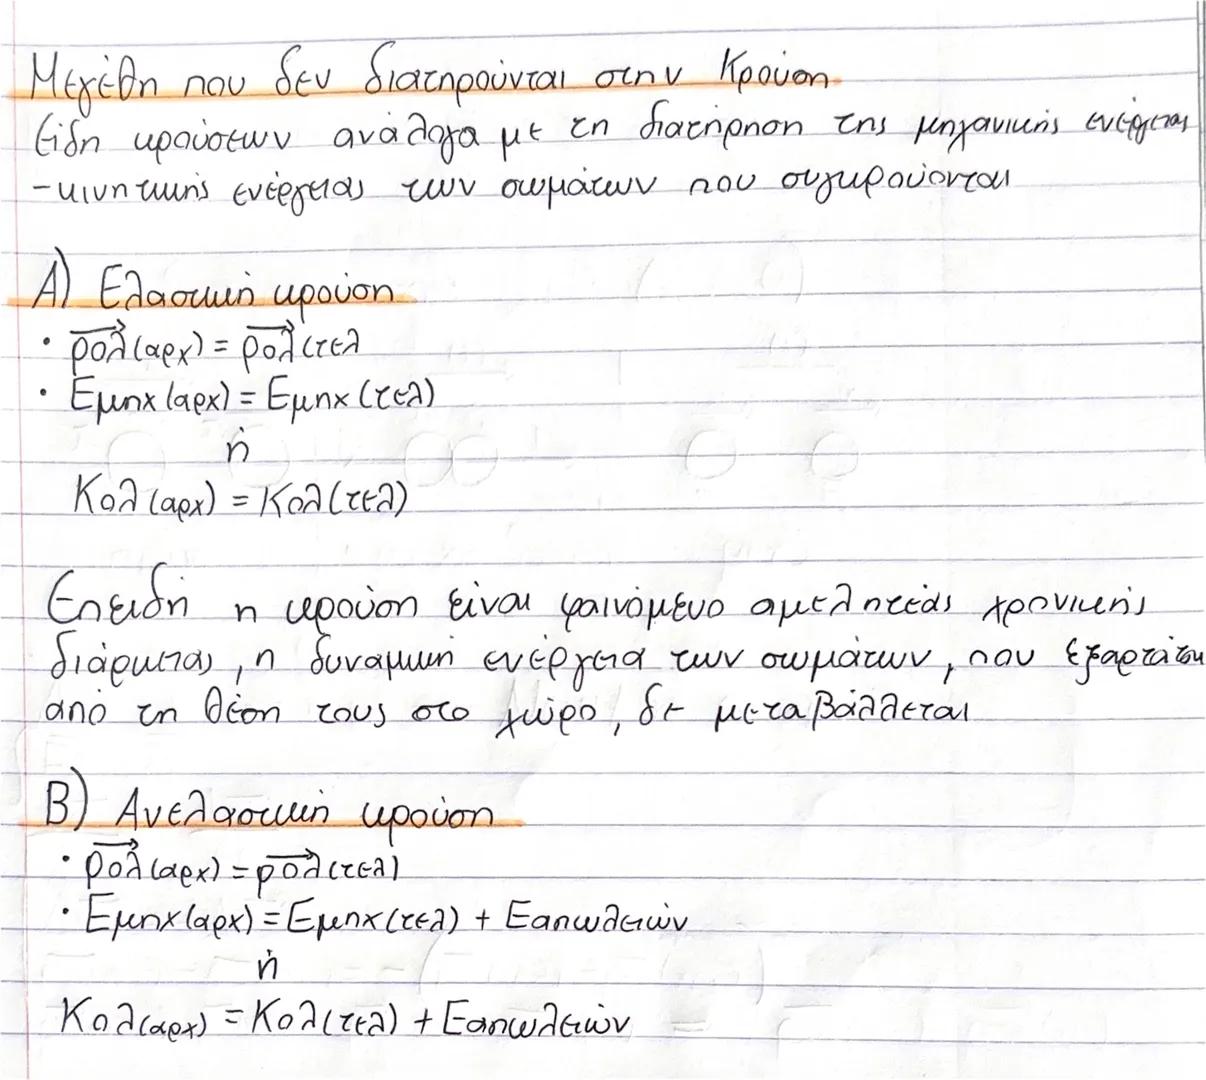 Μεγέθη που δεν διατηρούνται στην Κρούση
Είδη κρούσεων ανάλογα με τη διατήρηση της μηχανικής ενέργειας
-κινητικής ενέργειας των σωμάτων που συγκρούονται
Α) Ελαστική κρούση
• pολ(αρχ) = pολ(τελ
• Εμηχ(αρχ) = Εμηχ(τελ)
ή
Κολ(αρχ) = Κολ(τελ)
Επειδή η κρούση είναι φαινόμενο αμελητέας χρονικής
διάρκειας, η δυναμική ενέργεια των σωμάτων, που εξαρτάται
από τη θέση τους στο χώρο, δε μεταβάλλεται
Β) Ανελαστική κρούση
• pολ(αρχ) = pολ(τελ)
• Εμηχ(αρχ) = Εμηχ(τελ) + Εαπωλειών
ή
Κολ(αρχ) = Κολ(τελ) + Εαπωλειών